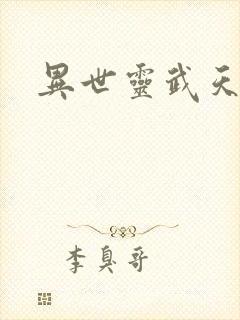 異世靈武天
李臭哥